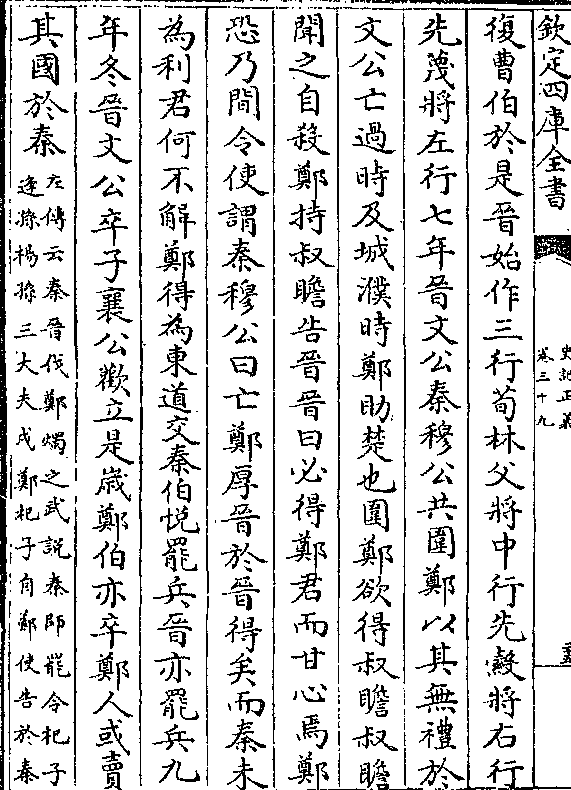 欽定四庫全書
史記正義
卷三十九
復曹伯於是晉始作三行荀林父將中行先縠將右行
先蔑將左行七年晉文公秦穆公共圍鄭以其無禮於
文公亡過時及城濮時鄭助楚也圍鄭欲得叔瞻叔瞻
聞之自殺鄭持叔瞻告晉晉曰必得鄭君而甘心焉鄭
恐乃間令使謂秦穆公曰亡鄭厚晉於晉得矣而秦未
為利君何不解鄭得為東道交秦伯悅罷兵晉亦罷兵九
年冬晉文公卒子襄公歡立是歲鄭伯亦卒鄭人或賣
其國於秦
左傳云秦晉伐鄭燭之武說秦師罷令杞子
逢孫楊孫三大夫戍鄭杞子自鄭使告於秦